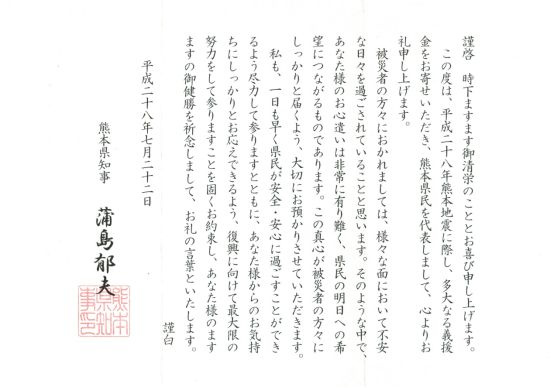 謹啓　時下ますます御清学のこととお喜び申し上げます。
この度は、平成二十八年熊本地震に際し、多大なる義援
金をお寄せいただき、熊本県民を代表しまして、心よりお
礼申し上げます。
被災者の方々におかれましては、様々な面において不安
な日々を過ごされていることと思います。そのような中で、
あなた様のお心遣いは非常に有り難く、県民の明日への希
望につながるものであります。この真心が被災者の方々に
しっかりと届くよう、大切にお預かりさせていただきます。
私も、一日も早く県民が安全・安心に過ごすことができ
るよう尽力して参りますとともに、あなた様からのお気持
ちにしっかりとお応えできるよう、復興に向けて最大限の
努力をして参りますことを固くお約束し、あなた様のます
ますの御健勝を祈念しまして、お礼の言葉といたします。
謹白
平成二十八年七月二十二日
熊本県知事　蒲島郁夫
熊本
県知
事印